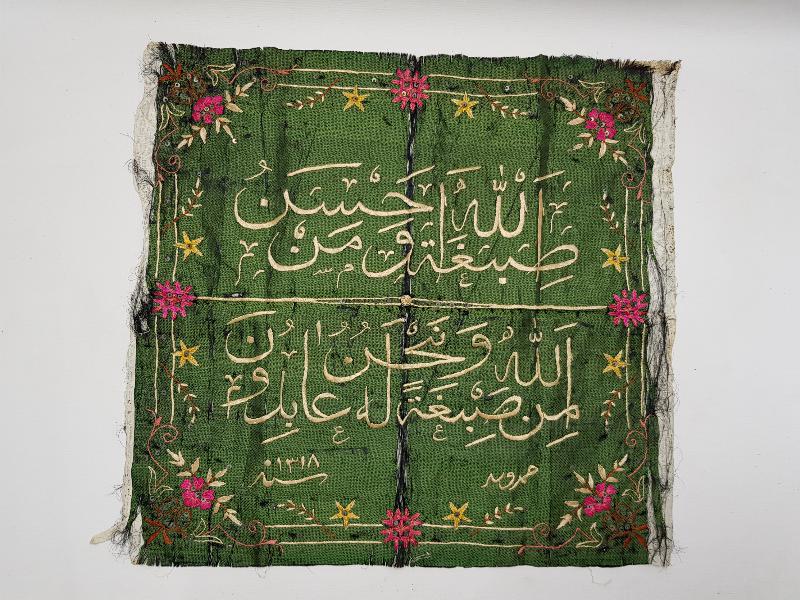 صِبْغَةَ اللّٰهِ وَمَنْ اَحْسَنُ
مِنَ اللّٰهِ صِبْغَةً وَنَحْنُ لَهُ عَابِدُونَ
سنه ١٣١٨